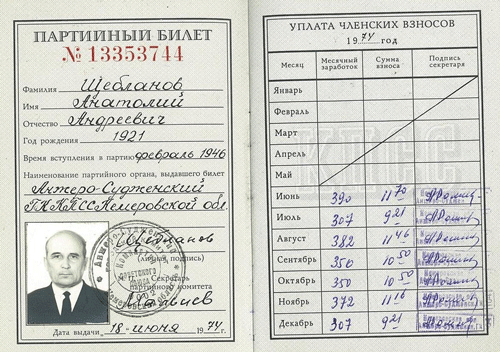 ПАРТИЙНЫЙ БИЛЕТ
№ 13353744
Фамилия Щебланов
Имя Анатолий
Отчество Андреевич
Год рождения 1921
Время вступления в партию февраль 1946
Наименование партийного органа, выдавшего билет
Анжеро-Судженский
ГК КПСС Кемеровской обл.
(личная подпись)
Секретарь
партийного комитета
Дата выдачи 18 июня 1974 г.
УПЛАТА ЧЛЕНСКИХ ВЗНОСОВ
1974 год
Месяц Месячный заработок Сумма взноса Подпись секретаря
Январь
Февраль
Март
Апрель
Май
Июнь 390 11 70
Июль 307 9 21
Август 382 11 46
Сентябрь 350 10 50
Октябрь 350 10 50
Ноябрь 372 11 16
Декабрь 307 9 21